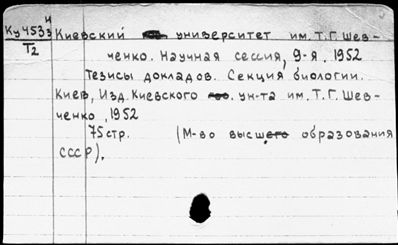 Ку 453 и
з
Т2
Киевский гос. университет им. Т. Г. Шев-
ченко. Научная сессия, 9-я. 1952
Тезисы докладов. Секция биологии.
Киев, Изд. Киевского гос. ун-та им. Т. Г. Шев-
ченко, 1952
75 стр. (М-во высшего образования
СССР).